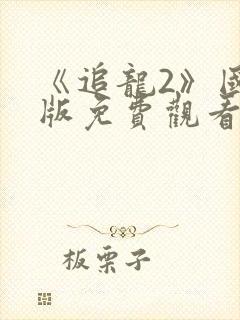 《追龍2》國
版免費觀看
板栗子